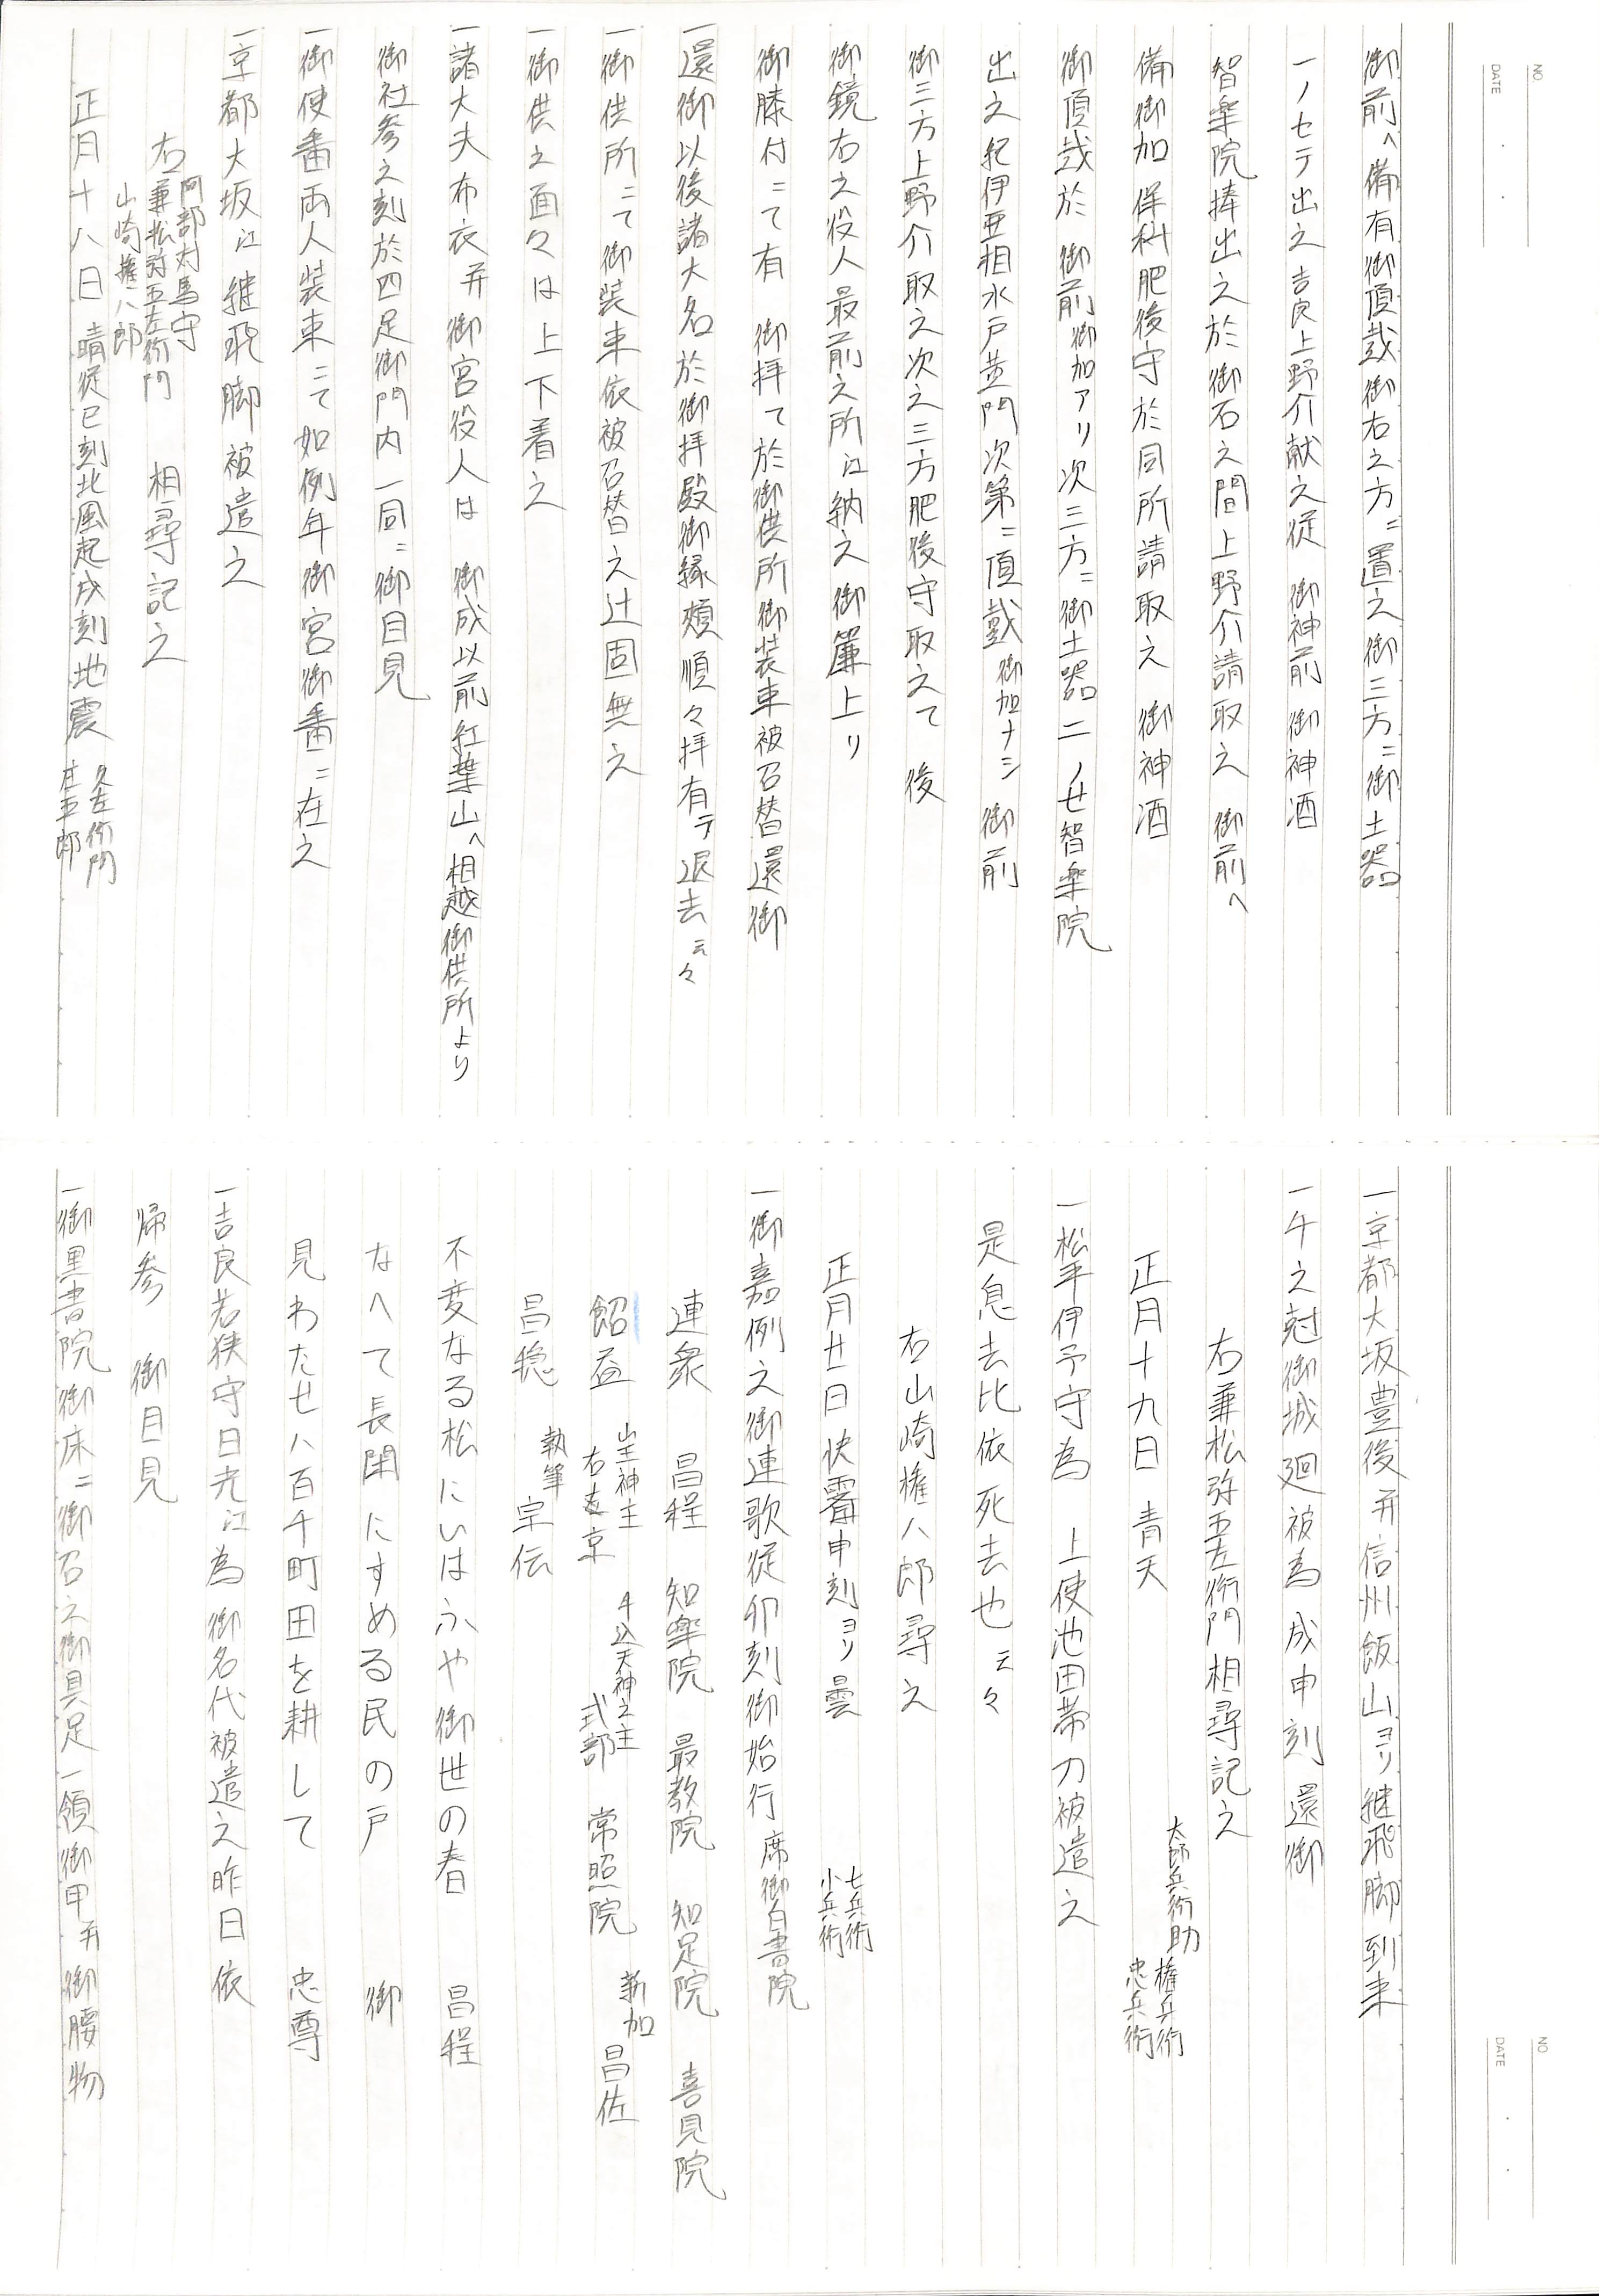 NO
DATE
御前ヘ備有御頂戴御右之方ニ置之御三方ニ御土器
一ノセテ出之吉良上野介献之従 御神前御神酒
智楽院捧出之於御石之間上野介請取之 御前ヘ
備御加保科肥後守於同所請取之 御神酒
御頂戴於 御前御加アリ次三方ニ御土器二ノせ智楽院
出之紀伊亜相水戸黄門次第ニ頂戴御加ナシ 御前
御三方上野介取之次之三方肥後守取之て 後
御鏡右之役人最前之所江納之御簾上リ
御膝付ニて有 御拝て於御供所御装束被召替還御
一還御以後諸大名於御拝殿御縁頬順々拝有テ退去云々
一御供所ニて御装束依被召替之辻固無之
一御供之面々は上下着之
一諸大夫布衣并御宮役人は 御成以前紅葉山ヘ相越御供所より
御社参之刻於四足御門内一同ニ御目見
一御使番両人装束ニて如例年御宮御番ニ在之
一京都大坂江継飛脚被遣之
阿部対馬守
右兼松弥五左衛門 相尋記之
山崎権八郎
正月十八日 晴従巳刻北風起戌刻地震 久左衛門
庄五郎
NO
DATE
一京都大坂豊後并信州飯山ヨリ継飛脚到来
一午之尅御城廻被為成申刻 還御
右兼松弥五左衛門相尋記之
正月十九日 青天 太郎兵衛助 権兵衛
忠兵衛
一松平伊予守為 上使池田帯刀被遣之
是息去比依死去也云々
右山崎権八郎尋之
正月廿日快霽申刻ヨリ曇 七兵衛
小兵衛
一御嘉例之御連歌従卯刻御始行 席御白書院
連衆 昌程 知楽院 最教院 知足院 喜見院
山王神主 牛込天神之主 新加
䬰益 右京 式部 常照院 昌佐
昌穏 執筆 宗伝
不変なる松にいはふや御世の春 昌程
なへて長閑にすめる民の戸 御
見わたせハ百千町田を耕して 忠尊
一吉良若狭守日光江為御名代被遣之昨日依
帰参 御目見
一御黒書院御床ニ御召之御具足一領御甲并御腰物